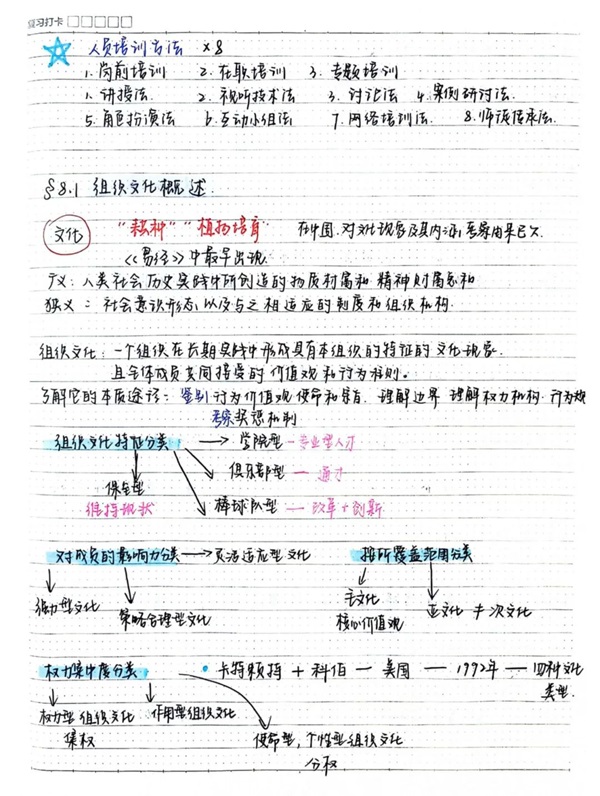 复习打卡
人员培训方法 ×8
1. 岗前培训 2. 在职培训 3. 专题培训
1. 讲授法 2. 视听技术法 3. 讨论法 4. 案例研讨法
5. 角色扮演法 6. 互动小组法 7. 网络培训法 8. 师徒传承法
§8.1 组织文化概述
文化 “耕种”“植物培育” 在中国,对文化现象及其内涵,考察由来已久
《易经》中最早出现
广义:人类社会历史实践中所创造的物质财富和精神财富总和
狭义:社会意识形态以及与之相适应的制度和组织机构.
组织文化:一个组织在长期实践中形成具有本组织的特征的文化现象.
且全体成员共同接受的价值观和行为准则。
了解它的本质途径:鉴别行为价值观 使命和宗旨 理解边界 理解权力机构 行为规
考察奖惩机制
组织文化特征分类 → 学院型 — 专业型人才
俱乐部型 — 通才
保垒型 棒球队型 — 改革+创新
维持现状
对成员的影响力分类 → 灵活适应型文化 按所覆盖范围分类
强力型文化 策略合理型文化 主文化 亚文化 ≠ 次文化
核心价值观
权力集中度分类 • 卡特赖特 + 科伯 — 美国 — 1992年 — 四种文化
类型
权力型组织文化 作用型组织文化
集权 使命型,个性型组织文化
分权